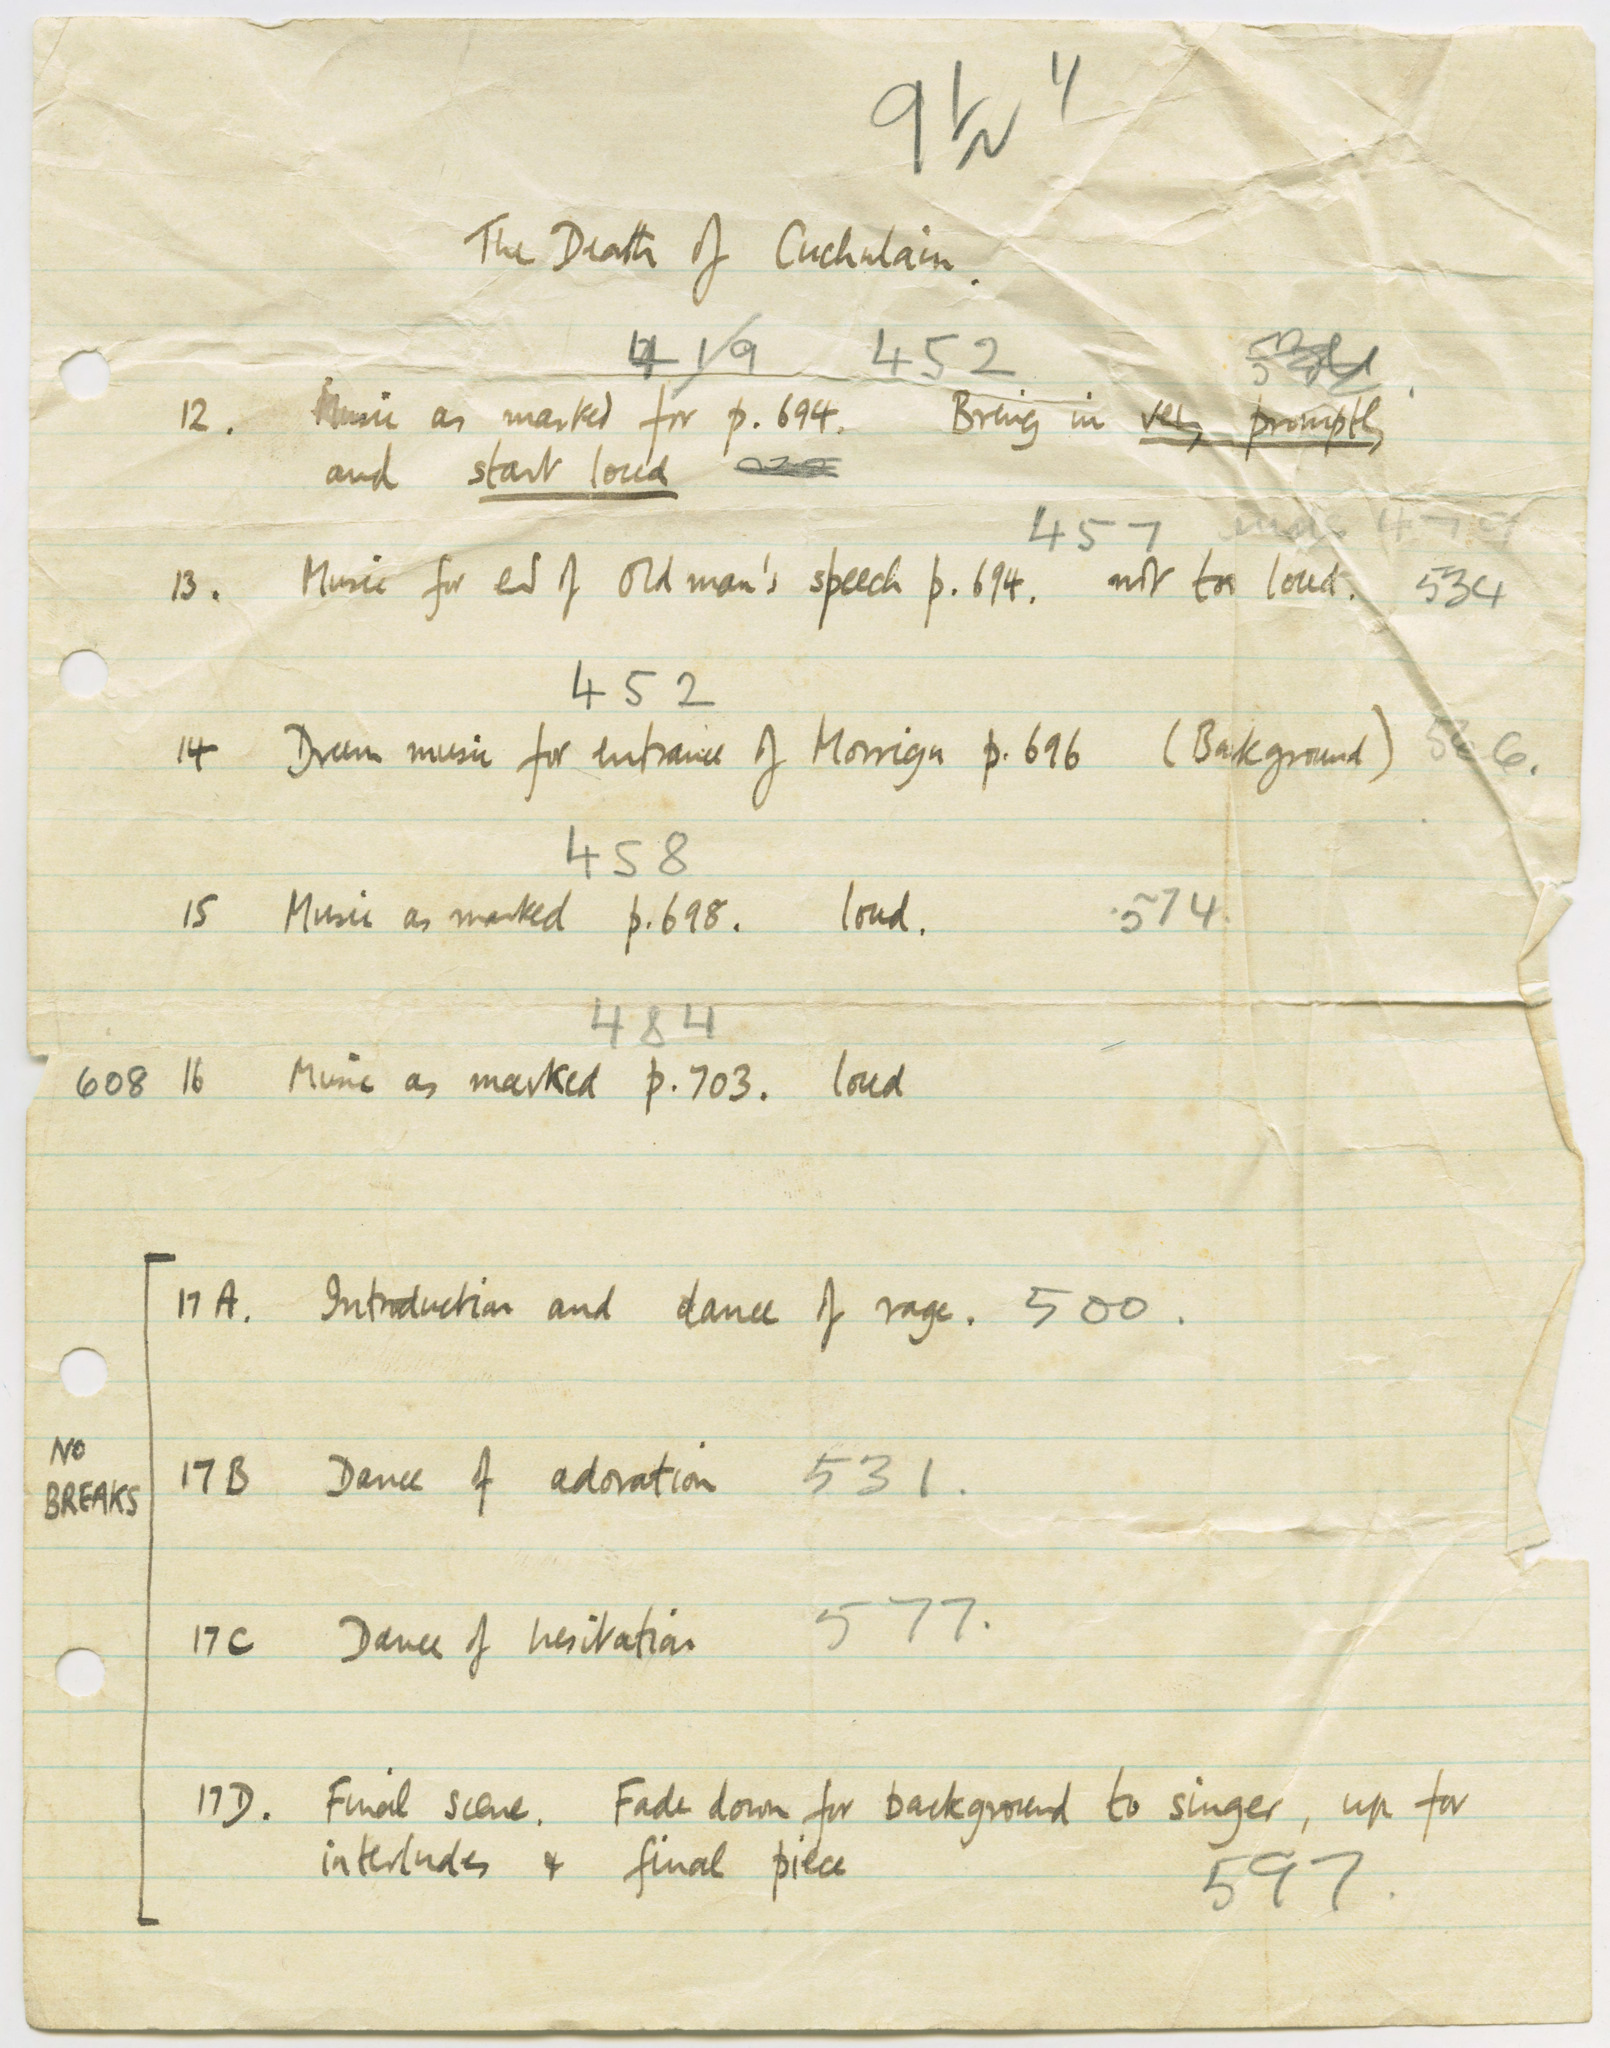 9 1/2 "
The Death of Cuchulain.
419 452
12. Music as marked for p. 694. Bring in very promptly
and start loud
457
13. Music for end of Old man's speech p. 694. not too loud. 534
452
14 Drum music for entrance of Morrigu p. 696 (Background)
458
15 Music as marked p. 698. loud. 574.
484
608 16 Music as marked p. 703. loud
17A. Introduction and dance of rage. 500.
NO
BREAKS
17B Dance of adoration 531.
17C Dance of hesitation 577.
17D. Final scene. Fade down for background to singer, up for
interludes + final piece 597.